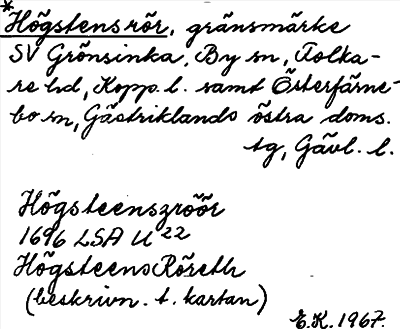 *Högstensrör, gränsmärke
SV Grönsinka, By sn, Folka-
re hd, Kopp. l. samt Österfärne-
bo sn, Gästriklands östra doms.
tg, Gävl. l.
Högsteenszröör
1696 LSA U 22
HögsteensRöreth
(beskrivn. t. kartan)
E.K. 1967.